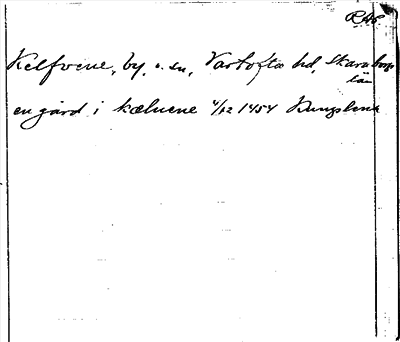 RAP
Kelfvene, by, o. sn, Vartofta hd, Skaraborgs
län
en gård i kæluene 4/12 1454 Kungslena